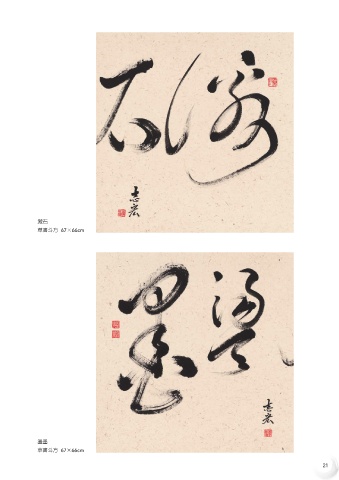 石
志宏
石
草書斗方 67×66cm
盪墨
志宏
盪墨
草書斗方 67×66cm
21